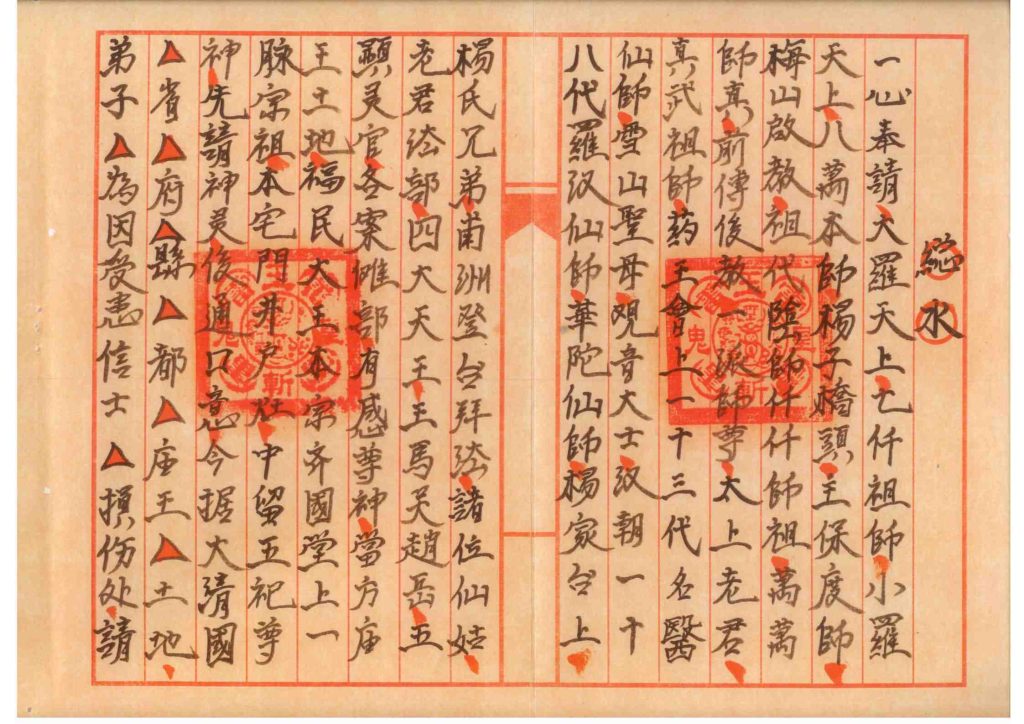 總水
一心奉請大羅天上七仟祖師小羅
天上八萬本師楊子橋頭主保度師
梅山啟教祖代陞師仟仟師祖萬萬
師真前傳後教一派師尊太上老君
真武祖師药王會上一十三代名醫
仙師雪山聖母观音大士汉朝一十
八代羅汉仙師華陀仙師楊家台上
楊氏兄弟甫洲登台拜法諸位仙姑
老君法部四大天王王馬灵趙岳五
顯灵官各案雄部有感尊神當方庙
王土地福民大王本宗齐國堂上一
脉宗祖本宅門井户灶中留五祀尊
神先請神灵後通口意今据大清國
▲省▲府▲縣▲都▲庙王▲土地
弟子▲為因受患信士▲損伤处請